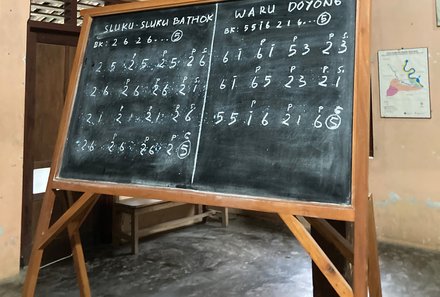 SLUKU-SLUKU BATHOK
BK: 2 6 2 6... ⑤
P P P S
2 5 2 5 2 5 2 6
P P P S
2 6 2 6 2 6 2 1
P P P S
2 1 2 1 2 1 2 6
P P P
2 6 2 6 2 6 2 ⑤
WARU DOYONG
BK: 5 5 i 6 2 1 6... ⑤
P P P S
6 i 6 i 5 3 2 3
P P S
6 i 6 5 2 3 2 1
P P
5 5 i 6 2 1 6 ⑤